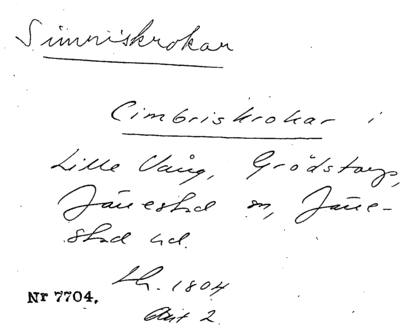 Simriskrokar
Cimbriskrokar i
Lille Vång, Grödstorp,
Järrestad sn, Järre-
stad hd.
Lh. 1804
Akt 2.
Nr 7704.